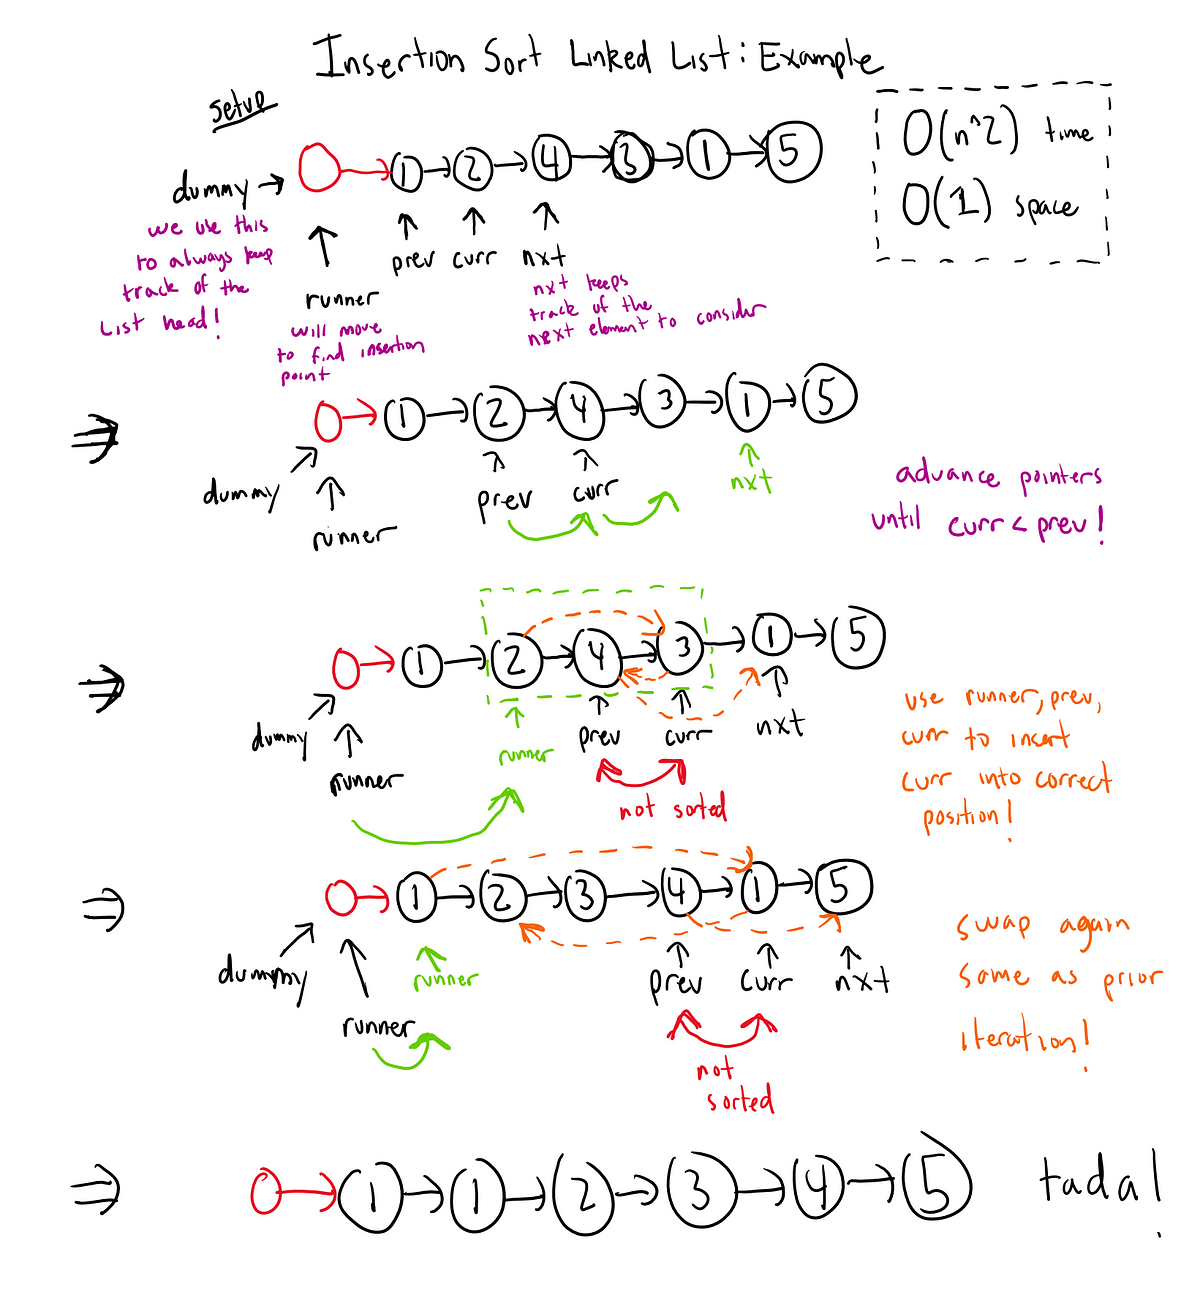 Insertion Sort Linked List: Example
setup
O(n^2) time
O(1) space
dummy
1 2 4 3 1 5
we use this
to always keep
track of the
List head!
runner
prev curr nxt
will move
to find insertion
point
nxt keeps
track of the
next element to consider
1 2 4 3 1 5
dummy
runner
prev curr nxt
advance pointers
until curr < prev!
1 2 4 3 1 5
dummy
runner
runner
prev curr nxt
not sorted
use runner, prev,
curr to insert
curr into correct
position!
1 2 3 4 1 5
dummy
runner
runner
prev curr nxt
not
sorted
swap again
same as prior
iteration!
1 1 2 3 4 5
tada!